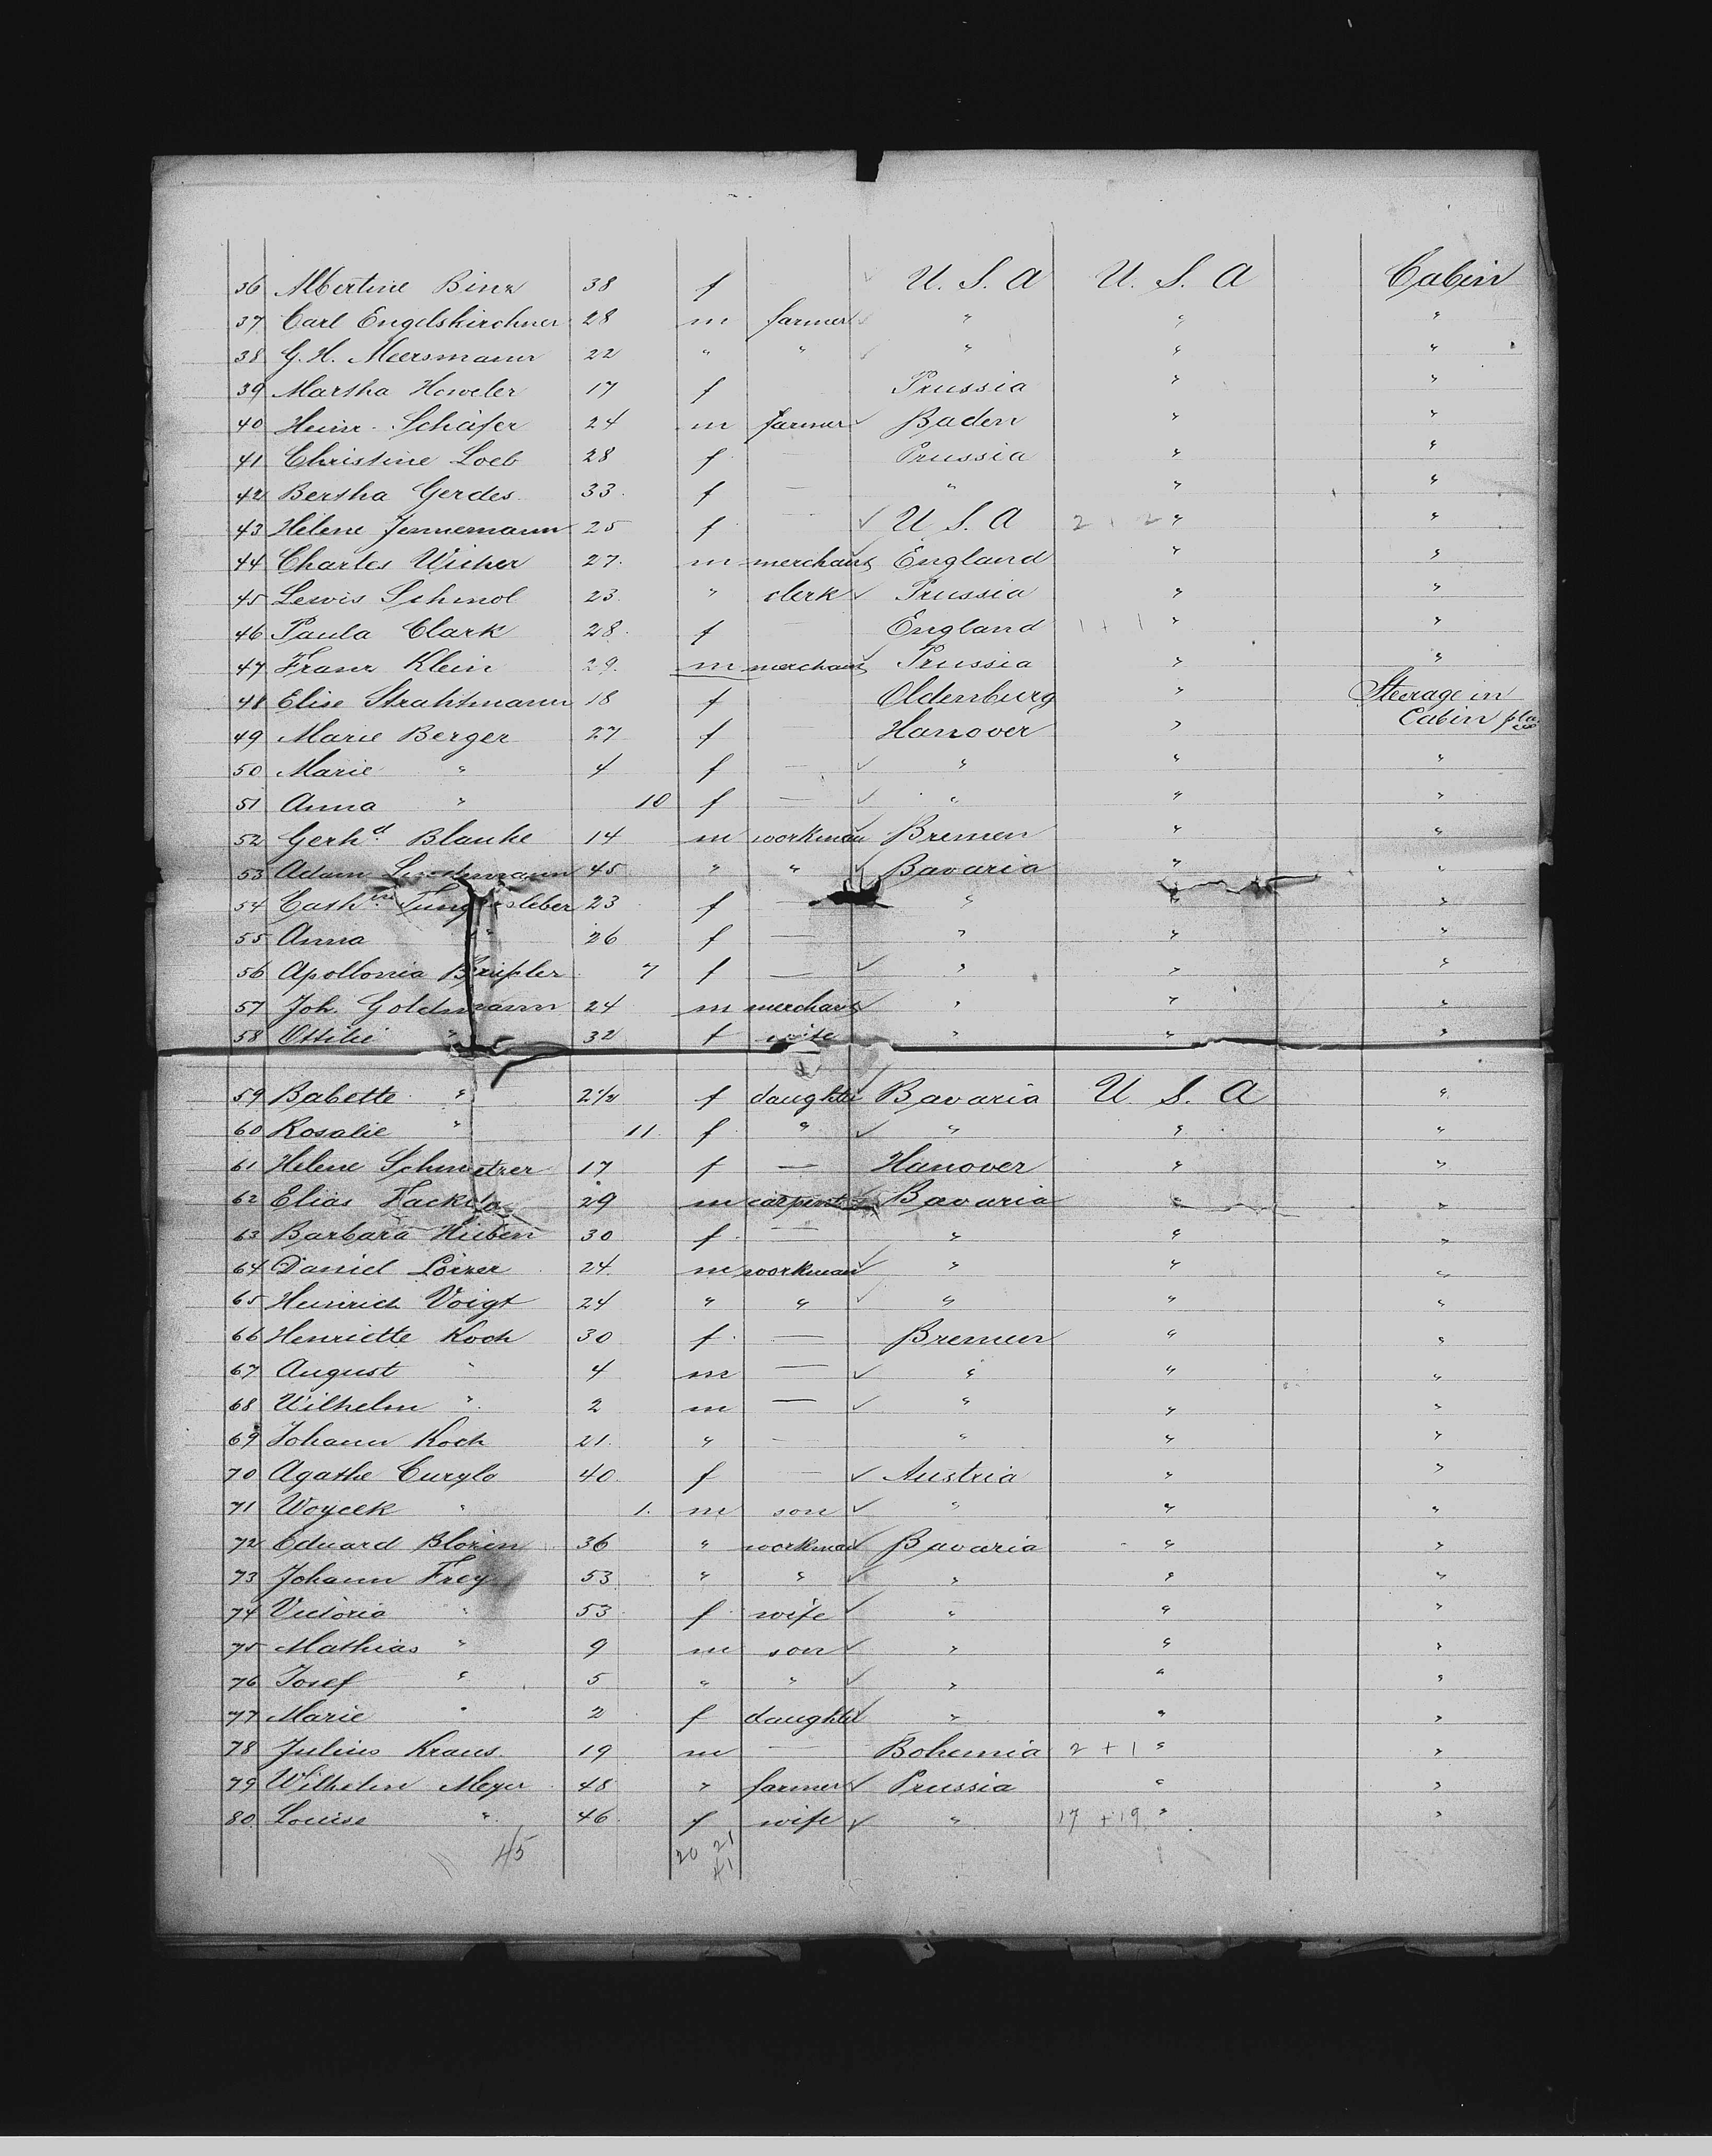 36 Albertine Binz 38 f U. S. A U. S. A Cabin
37 Carl Engelskirchner 28 m farmer " " "
38 G. H. Meersmann 22 " " " " "
39 Martha Howeler 17 f Prussia " "
40 Heinr. Schäfer 24 m farmer Baden " "
41 Christine Loeb 28 f Prussia " "
42 Bertha Gerdes 33 f — " " "
43 Helene Jennemann 25 f — U S. A 2 "
44 Charles Wicher 27. m merchant England " "
45 Lewis Schmol 23 " clerk Prussia " "
46 Paula Clark 28. f — England 1 + 1 " "
47 Franz Klein 29. m merchant Prussia " "
48 Elise Strahtmann 18 f Oldenburg " Steerage in
Cabin
49 Marie Berger 27 f Hanover "
50 Marie " 4 f — " " "
51 Anna " 10 f — " " "
52 Gerhd. Blanke 14 m workman Bremen " "
53 Adam 45 " " Bavaria " "
54 23 f — " " "
55 Anna " 26 f — " " "
56 Apollonia 7 f — " " "
57 Joh. Goldmann 24 m merchant " " "
58 Ottilie " 32 f wife " " "
59 Babette " 2 1/2 f daughter Bavaria U. S. A "
60 Rosalie " 11. f " " " "
61 Helene Schmetzer 17 f — Hanover " "
62 Elias 29 m Bavaria " "
63 Barbara Hüben 30 f — " " "
64 Daniel Loizer 24. m workman " " "
65 Heinrich Voigt 24 " " " " "
66 Henriette Koch 30 f — Bremen " "
67 August " 4 m — " " "
68 Wilhelm " 2 m — " " "
69 Johann Koch 21. " — " " "
70 Agathe Curylo 40. f — Austria " "
71 Woycek " 1. m son " " "
72 Eduard Blorin 36 " workman Bavaria " "
73 Johann Frey 53 " " " " "
74 Victoria " 53 f wife " " "
75 Mathias " 9 m son " " "
76 Josef " 5 " " " " "
77 Marie " 2 f daughter " " "
78 Julius Kraus. 19 m — Bohemia 2 + 1 " "
79 Wilhelm Meyer 48 " farmer Prussia " "
80 Louise " 46. f wife " 17 + 19 " "
45 20 21
41